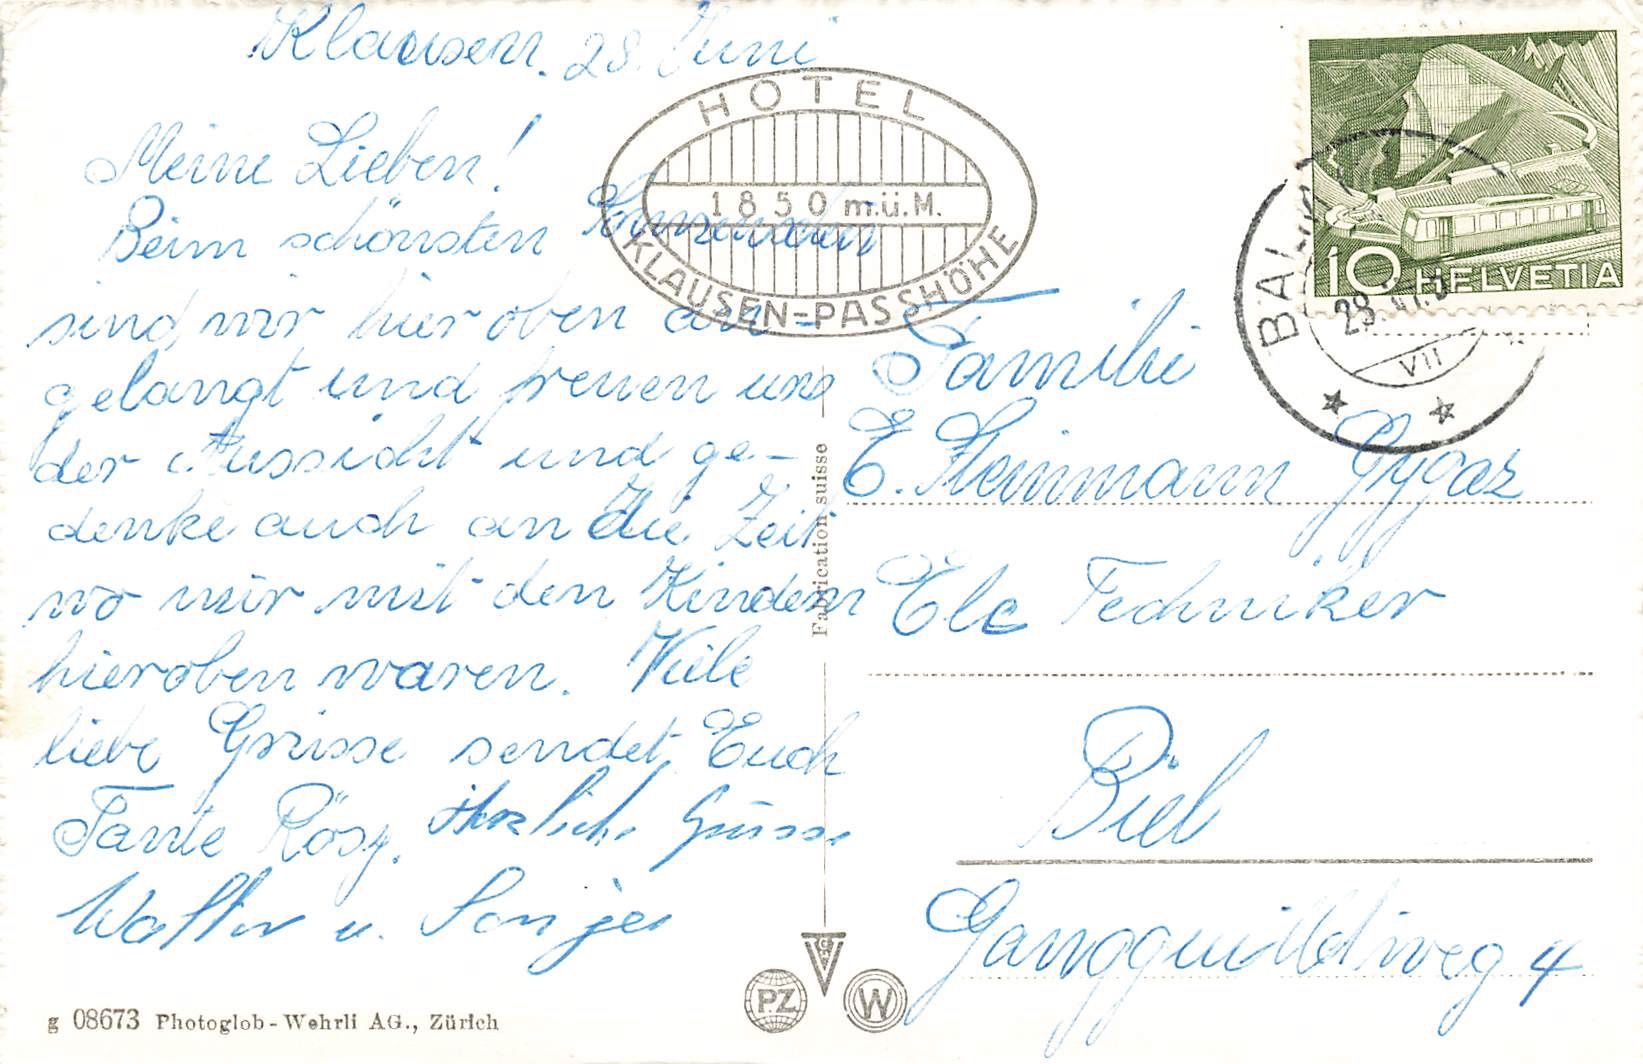 Klausen. 28. Juni
HOTEL
1850 m.ü.M.
KLAUSEN=PASSHÖHE
Meine Lieben!
Beim schönsten
sind wir hier oben an-
gelangt und freuen uns
der Aussicht und ge-
denke auch an die Zeit
wo wir mit den Kindern
hieroben waren. Viele
liebe Grüsse sendet Euch
Tante Rösy. Herzliche Grüsse
Walter u. Sonja
10 HELVETIA
BAL
28. VI.
VII
Familie
E. Steinmann Gygax
Ele Techniker
Biel
4
Fabrication suisse
PZ
W
g 08673 Photoglob-Wehrli AG., Zürich